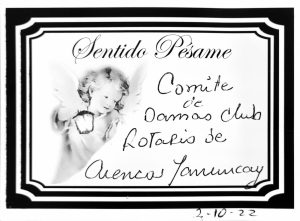 Sentido Pésame
Comite
de
Damas Club
Rotario de
2-10-22